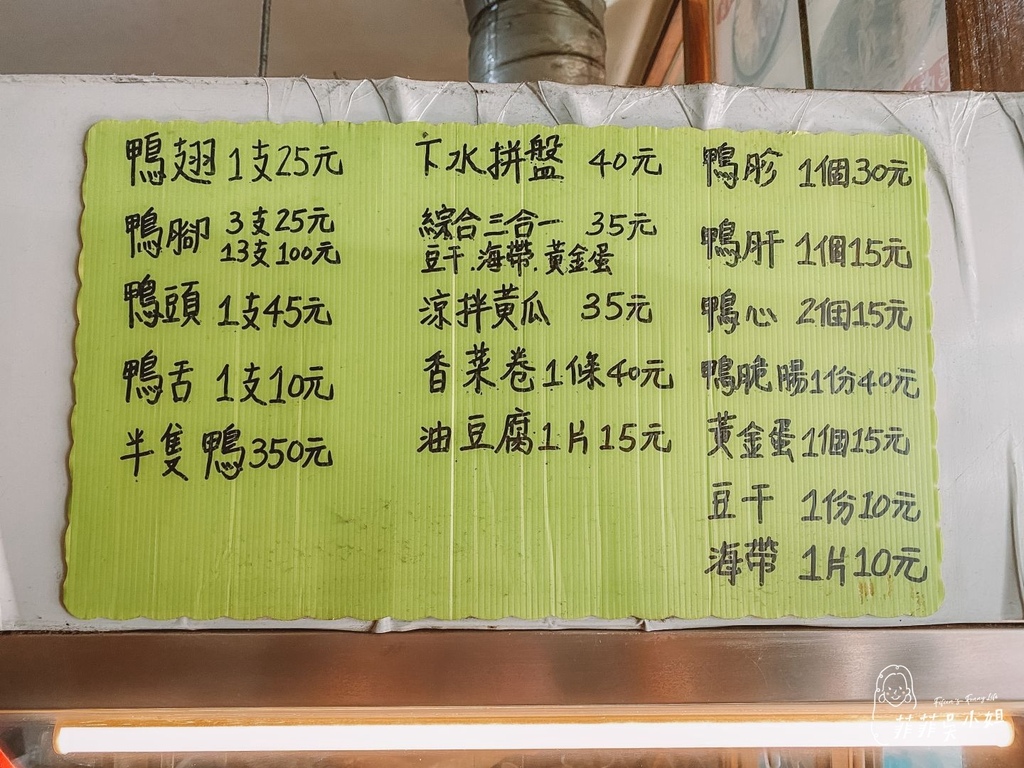 鴨翅 1支25元
鴨腳 3支25元
13支100元
鴨頭 1支45元
鴨舌 1支10元
半隻鴨350元
下水拼盤 40元
綜合三合一 35元
豆干.海帶.黃金蛋
涼拌黃瓜 35元
香菜卷1條40元
油豆腐1片15元
鴨胗 1個30元
鴨肝 1個15元
鴨心 2個15元
鴨脆腸1份40元
黃金蛋1個15元
豆干 1份10元
海帶 1片10元
菲菲吳小姐